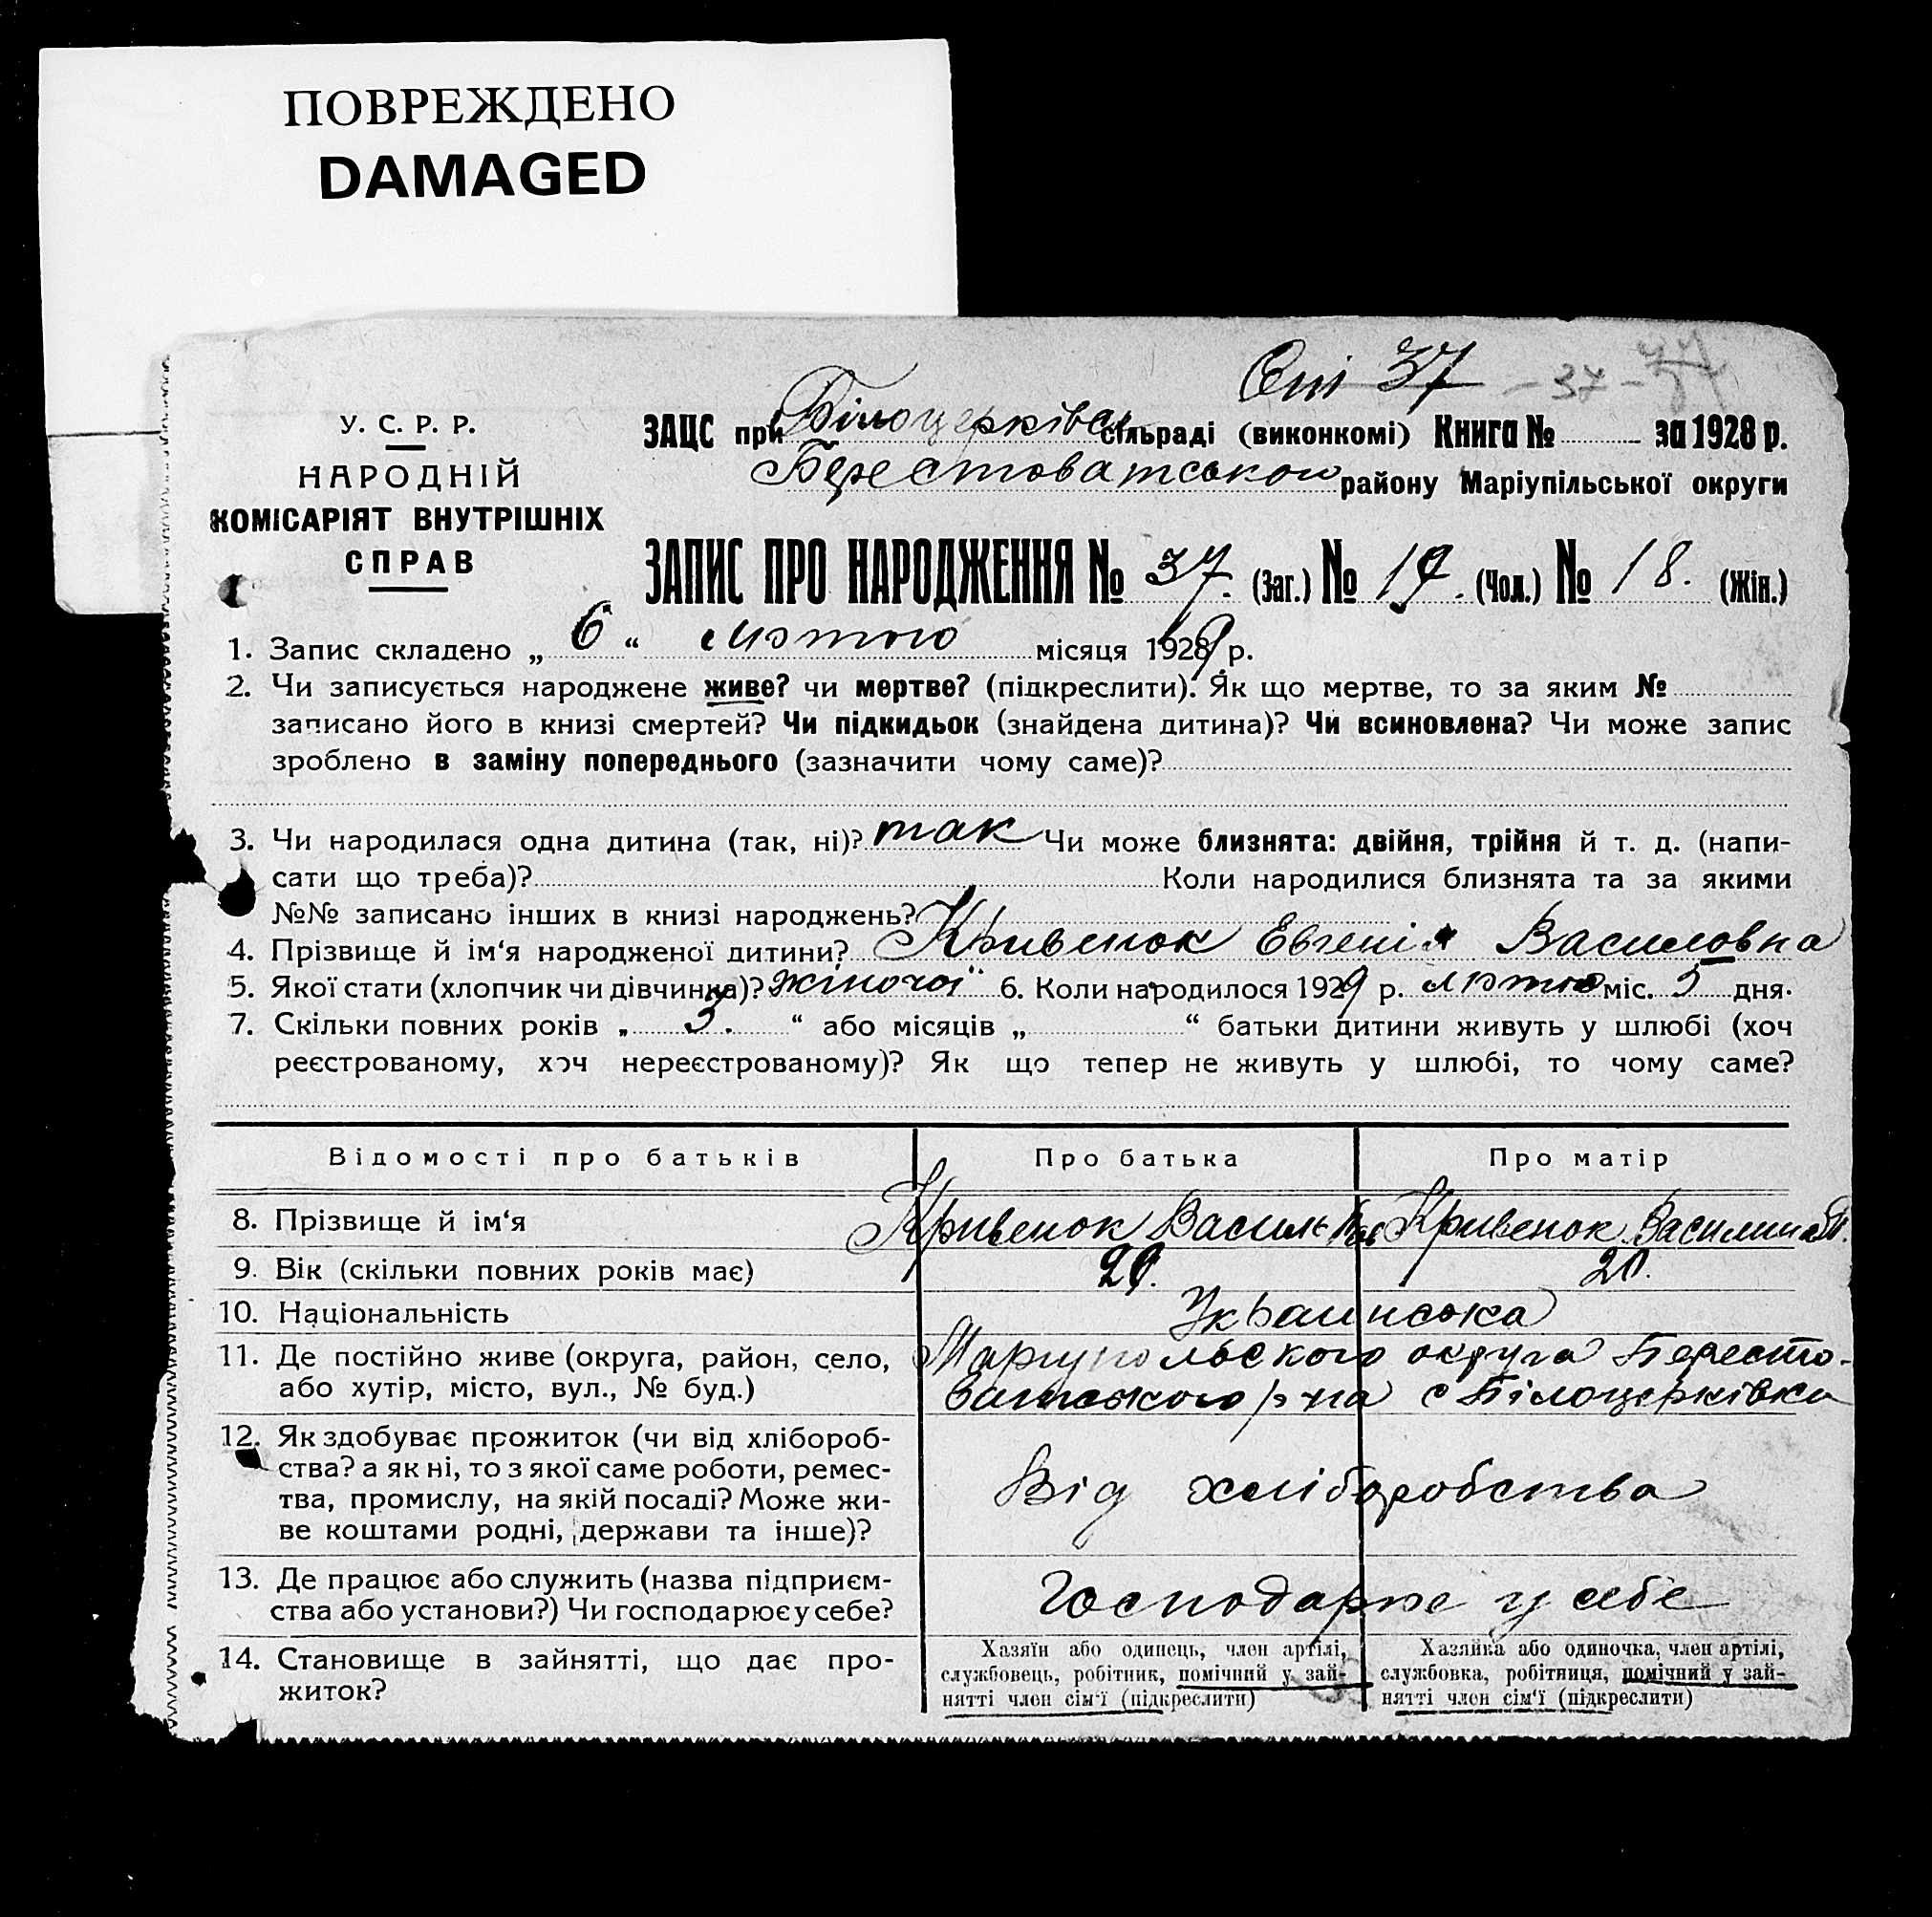 ПОВРЕЖДЕНО
DAMAGED
37 - 37 -
У. С. Р. Р.
НАРОДНІЙ
КОМІСАРІЯТ ВНУТРІШНІХ
СПРАВ
ЗАЦС при Білоцерківск сільраді (виконкомі) Книга № за 1928 р.
Берестоватського району Маріупільської округи
ЗАПИС ПРО НАРОДЖЕННЯ № 37. (Заг.) № 19. (Чол.) № 18. (Жін.)
1. Запис складено „ 6 “ лютого місяця 1929 р.
2. Чи записується народжене живе? чи мертве? (підкреслити). Як що мертве, то за яким №
записано його в книзі смертей? Чи підкидьок (знайдена дитина)? Чи всиновлена? Чи може запис
зроблено в заміну попереднього (зазначити чому саме)?
3. Чи народилася одна дитина (так, ні)? так Чи може близнята: двійня, трійня й т. д. (напи-
сати що треба)? Коли народилися близнята та за якими
№№ записано інших в книзі народжень?
4. Прізвище й ім‘я народженої дитини? Кривенок Евгенія Василовна
5. Якої статі (хлопчик чи дівчинка)? жіночої 6. Коли народилося 1929 р. лютого міс. 5 дня.
7. Скільки повних років „ 3. “ або місяців „ “ батьки дитини живуть у шлюбі (хоч
реєстрованому, хоч нереєстрованому)? Як що тепер не живуть у шлюбі, то чому саме?
Відомості про батьків Про батька Про матір
8. Прізвище й ім‘я Кривенок Василь Кривенок Василина
9. Вік (скільки повних років має) 20.
10. Національність Украинська
11. Де постійно живе (округа, район, село, Маріупольского округа Бересто-
або хутір, місто, вул., № буд.) ватського р-на с Білоцерківка
12. Як здобуває прожиток (чи від хлібороб-
ства? а як ні, то з якої саме роботи, ремес-
тва, промислу, на якій посаді? Може жи-
ве коштами родні, держави та інше)?
Від хліборобства
13. Де працює або служить (назва підприєм-
ства або установи?) Чи господарює у себе?
Господарює у себе
14. Становище в зайнятті, що дає про-
житок?
Хазяїн або одинець, член артілі,
службовець, робітник, помічний у зай-
нятті член сім‘ї (підкреслити)
Хазяйка або одиночка, член артілі,
службовка, робітниця, помічний у зай-
нятті член сім‘ї (підкреслити)